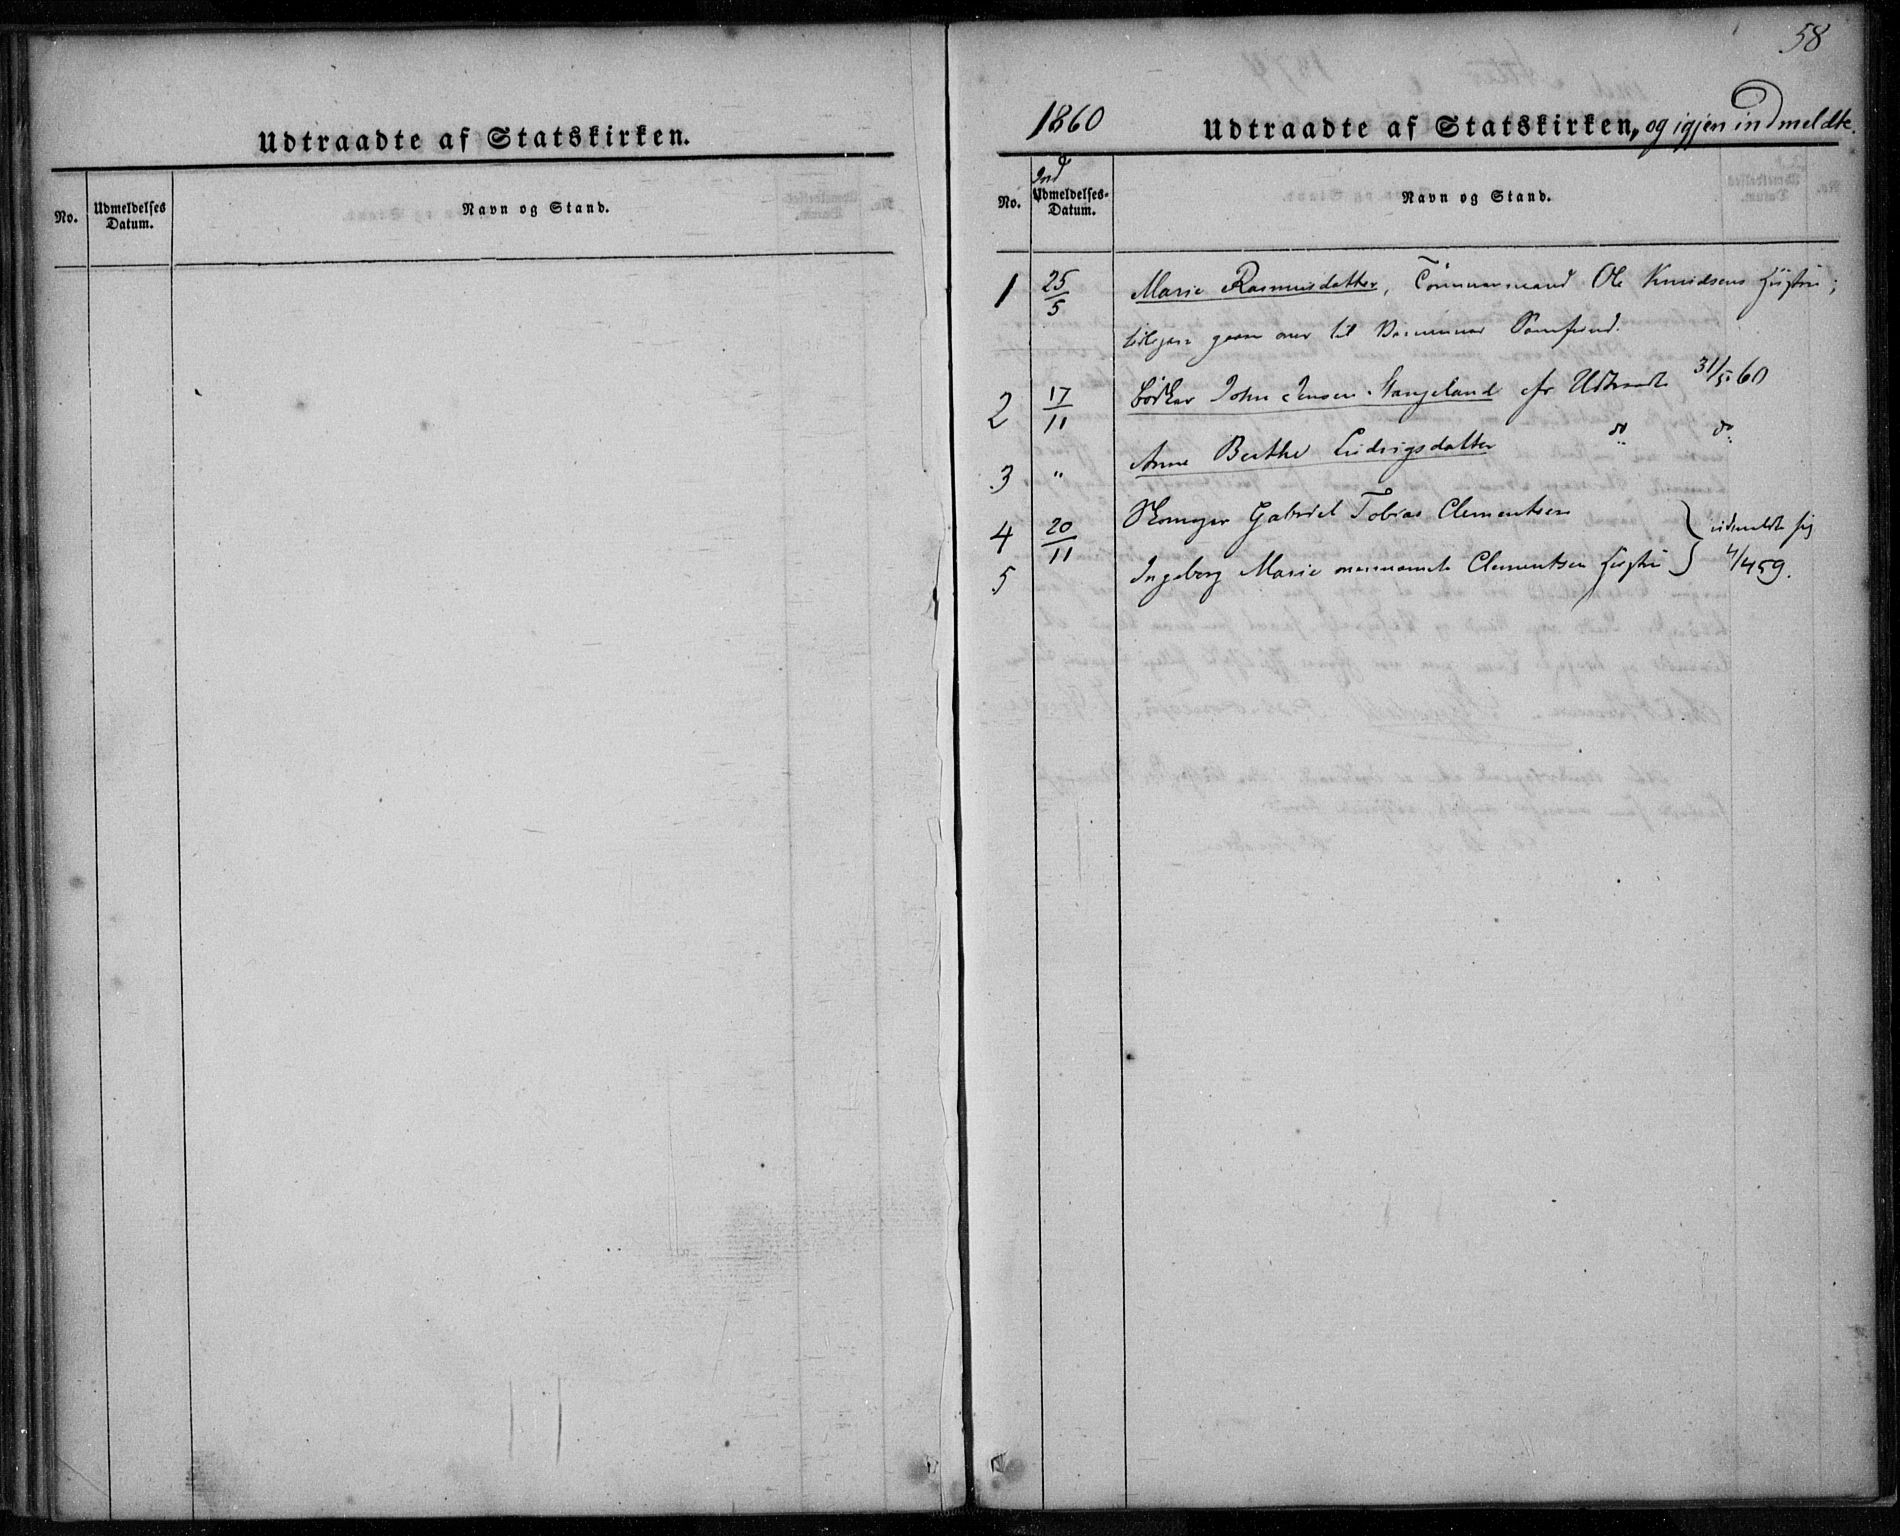 Udtraadte af Statskirken.
No.
Udmeldelses
Datum.
Navn og Stand.
58
1860
Udtraadte af Statskirken, og igjen indmeldte.
No.
Ind
Udmeldelses-
Datum.
Navn og Stand.
1 25/5 Marie Rasmusdatter, Tømmermand Ole Knudsens Hustru;
tidligere gaaen over til Samfund.
2 17/11 Bødker John Jensen Stangeland efr Udtraadt 31/5 60
3 " Anne Berthe Ludvigsdatter do do
4 20/11 Skomager Gabriel Tobias Clementsen
5 Ingeborg Marie ovennævnte Clementsen Hustru } udmeldte sig
4/4 59.